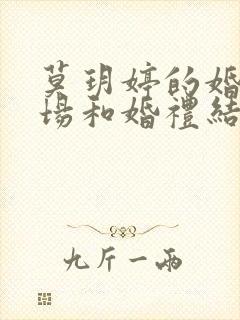 莫玥婷的婚
場和婚禮結
九斤一兩